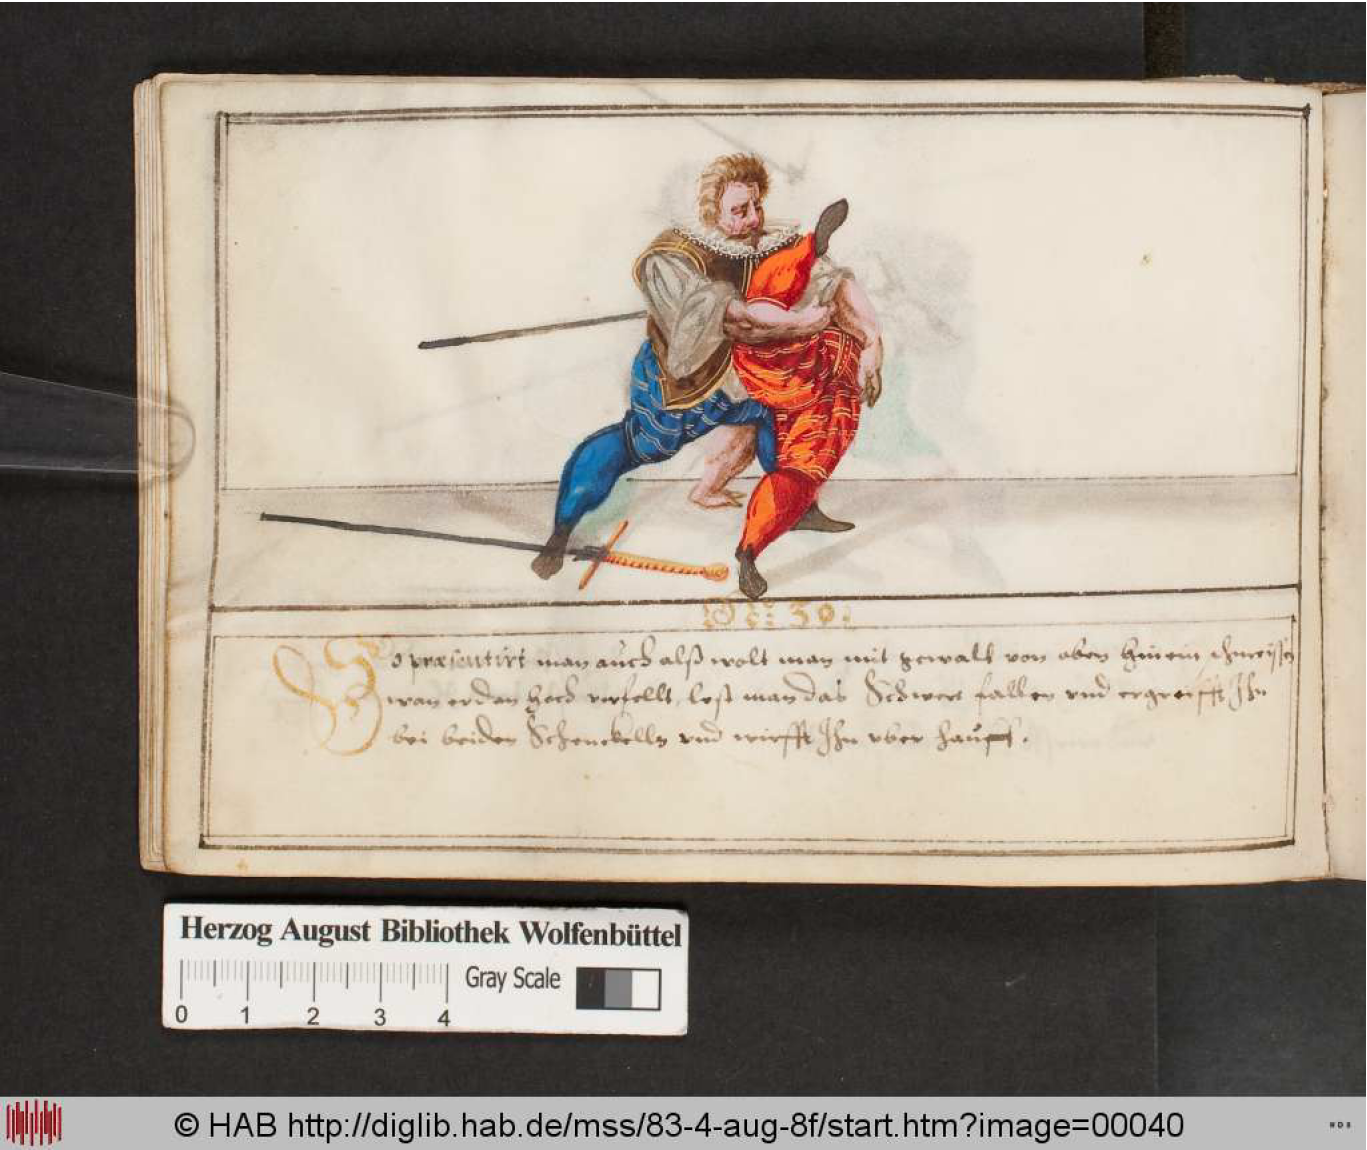 No: 30:
So præsentirt man auch alß wolt man mit gewalt von oben hinein schmeissen
wan er dan hoch verfellt, lest man das Schwert fallen und ergreifft Ihn
bei beiden Schenckelln und wirfft Ihn uber haupt.
Herzog August Bibliothek Wolfenbüttel
Gray Scale
0 1 2 3 4
© HAB http://diglib.hab.de/mss/83-4-aug-8f/start.htm?image=00040